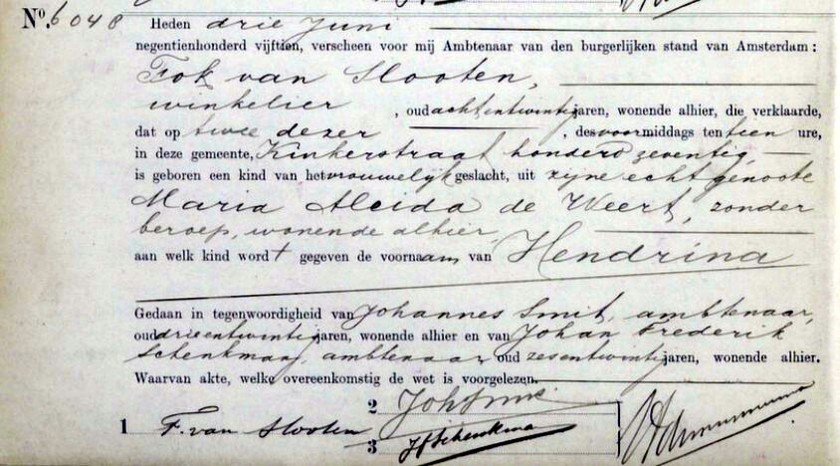 No. 6048 Heden drie Juni
negentienhonderd vijftien, verscheen voor mij Ambtenaar van den burgerlijken stand van Amsterdam:
Fok van Slooten,
winkelier, oud achtentwintig jaren, wonende alhier, die verklaarde,
dat op twee dezer, des voormiddags ten tien ure,
in deze gemeente, Kinkerstraat honderd zeventig,
is geboren een kind van het vrouwelijk geslacht, uit zijne echtgenoote
Maria Aleida de Weert, zonder
beroep, wonende alhier,
aan welk kind wordt gegeven de voornaam van Hendrina
Gedaan in tegenwoordigheid van Johannes Smit, ambtenaar,
oud drieentwintig jaren, wonende alhier en van Johan Frederik
Schenkman, ambtenaar, oud zesentwintig jaren, wonende alhier.
Waarvan akte, welke overeenkomstig de wet is voorgelezen.
2 Joh Smit
1 F. van Slooten
3 JFSchenkman